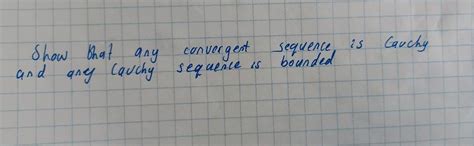 Show that any convergent sequence is Cauchy
and any Cauchy sequence is bounded